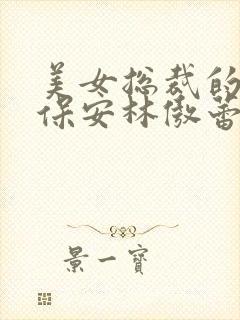 美女总裁的
保安林傲蕾
景一宝